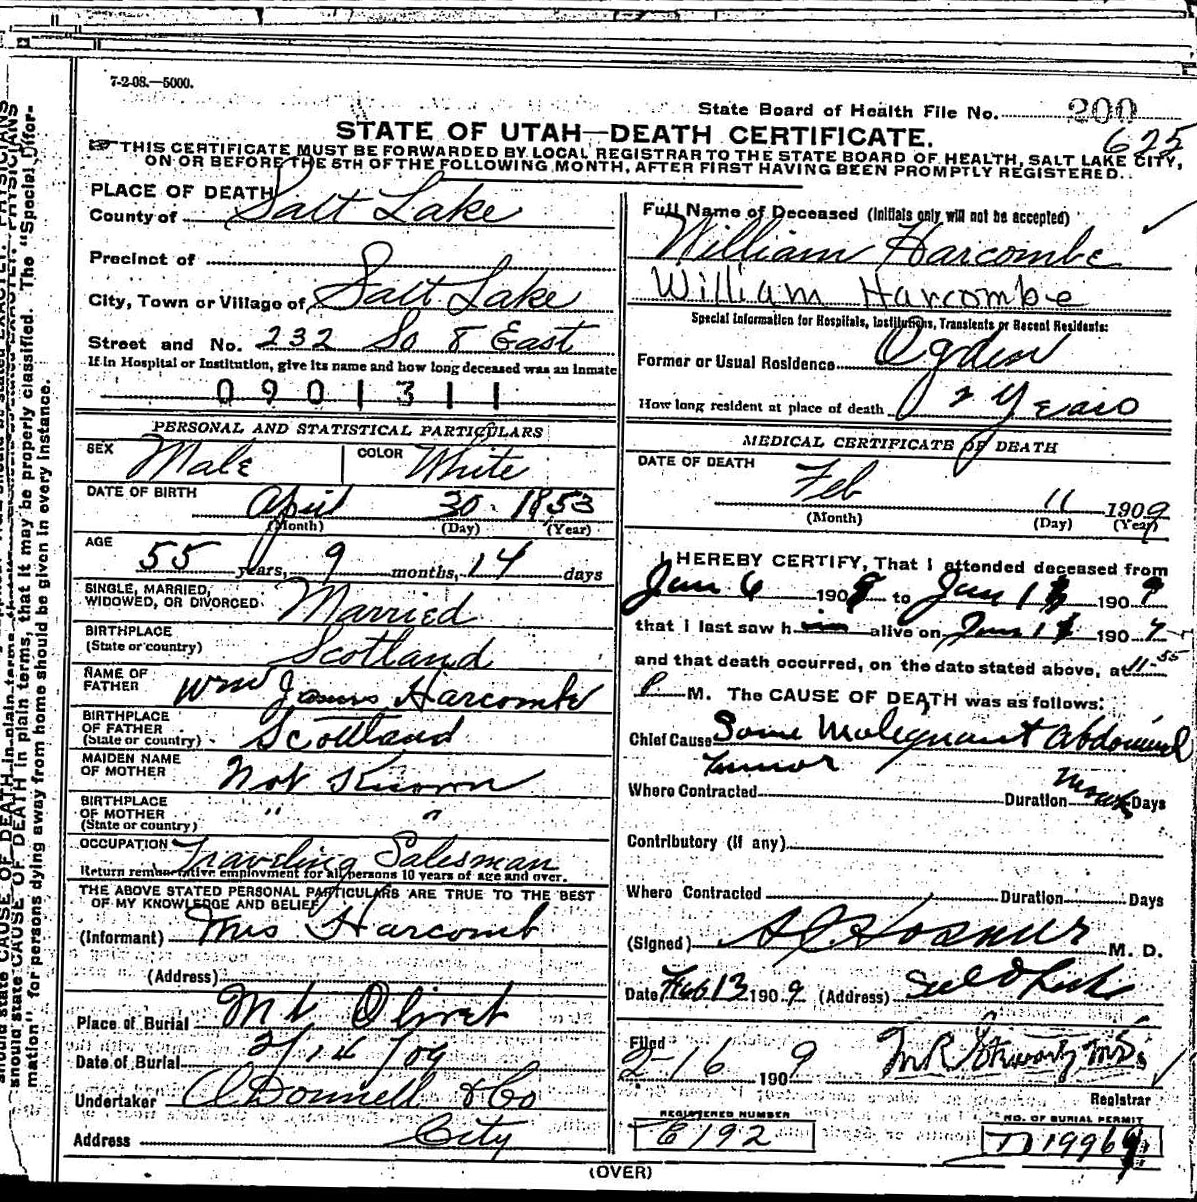 7-2-08.—5000.
State Board of Health File No. 200
625
STATE OF UTAH—DEATH CERTIFICATE.
THIS CERTIFICATE MUST BE FORWARDED BY LOCAL REGISTRAR TO THE STATE BOARD OF HEALTH, SALT LAKE CITY,
ON OR BEFORE THE 5TH OF THE FOLLOWING MONTH, AFTER FIRST HAVING BEEN PROMPTLY REGISTERED.
PLACE OF DEATH
County of Salt Lake
Precinct of
City, Town or Village of Salt Lake
Street and No. 232 So 8 East
If in Hospital or Institution, give its name and how long deceased was an Inmate
0901311
PERSONAL AND STATISTICAL PARTICULARS
SEX Male COLOR White
DATE OF BIRTH April 30 1853
(Month) (Day) (Year)
AGE 55 years, 9 months, 14 days
SINGLE, MARRIED,
WIDOWED, OR DIVORCED Married
BIRTHPLACE
(State or country) Scotland
NAME OF
FATHER Wm James Harcombe
BIRTHPLACE
OF FATHER
(State or country) Scottland
MAIDEN NAME
OF MOTHER Not Known
BIRTHPLACE
OF MOTHER
(State or country) " "
OCCUPATION Traveling Salesman
Return remunerative employment for all persons 10 years of age and over.
THE ABOVE STATED PERSONAL PARTICULARS ARE TRUE TO THE BEST
OF MY KNOWLEDGE AND BELIEF
(Informant) Mrs Harcomb
(Address)
Place of Burial Mt Olivet
Date of Burial 2/14/09
Undertaker O'Donnell & Co
Address City
Full Name of Deceased (Initials only will not be accepted)
William Harcombe
William Harcombe
Special Information for Hospitals, Institutions, Transients or Recent Residents:
Former or Usual Residence Ogden
How long resident at place of death 2 Years
MEDICAL CERTIFICATE OF DEATH
DATE OF DEATH
Feb 11 1909
(Month) (Day) (Year)
I HEREBY CERTIFY, That I attended deceased from
Jan 6 190 to Jan 190 9
that I last saw h alive on Jan 190
and that death occurred, on the date stated above, at 11-55
P M. The CAUSE OF DEATH was as follows:
Chief Cause Some Malegnant Abdominal
Tumor
Where Contracted Duration Days
Contributory (if any)
Where Contracted Duration Days
(Signed) M. D.
Date Feb 13 190 9 (Address)
Filed
2-16 190 9
Registrar
REGISTERED NUMBER
E192
NO. OF BURIAL PERMIT
(OVER)
should state CAUSE OF DEATH in plain terms, that it may be properly classified. The "Special Infor-
mation" for persons dying away from home should be given in every instance.